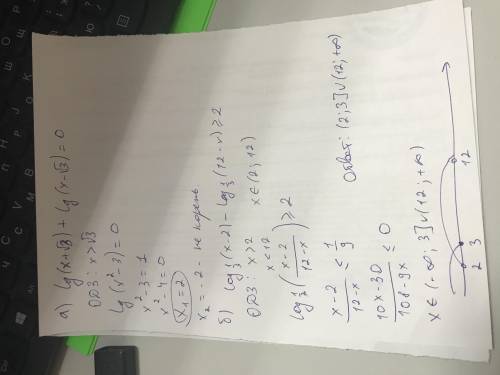 а) lg(x+√3) + lg(x-√3) = 0
ОДЗ: x>√3
lg(x²-3)=0
x²-3=1
x²-4=0
x₁=2
x₂=-2 - не корень
б) log_{1/3}(x-2) - log_{1/3}(12-x) ≥ 2
ОДЗ: x>2
x<12
x∈(2;12)
log_{1/3}((x-2)/(12-x)) ≥ 2
(x-2)/(12-x) ≤ 1/9
(10x-30)/(108-9x) ≤ 0
x∈(-∞; 3]∪(12;+∞)
2 3 12
Ответ: (2;3]∪(12;+∞)